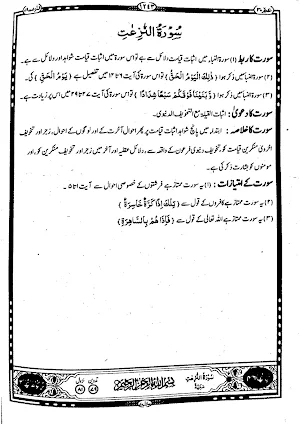 ۱۲۴۳
سُوْرَۃُ النّٰزِعٰتِ
سورت کا ربط (۱) سورۃ النباء میں اثبات قیامت دلائل سے ہے تو اس سورۃ میں اثبات قیامت شواہد اور دلائل سے ہے۔
(۲) سورۃ النباء میں ذکر ہوا ﴿ذٰلِكَ الْيَوْمُ الْحَقُّ﴾ تو اس سورۃ کی آیت ۶ تا ۱۴ میں تفصیل ہے ﴿يَوْمُ الْحَقِّ﴾ کی۔
(۳) سورۃ النباء میں ذکر ہوا ﴿وَبَنَيْنَا فَوْقَكُمْ سَبْعًا شِدَادًا﴾ تو اس سورۃ کی آیت ۲۷ تا ۲۹ میں اس پر زیادت ہے۔
سورت کا دعویٰ: اثبات القیامۃ مع التخویف الدنیوی۔
سورت کا خلاصہ: ابتداء میں پانچ شواہد اثبات قیامت پر پھر احوال آخرت کے اور لوگوں کے احوال، زجر اور تخویف
اخروی منکرین قیامت کو تخویف دنیوی فرعون کے واقعہ سے، دلائل عقلیہ اور آخر میں زجر اور تخویف منکرین کو اور
مومنوں کو بشارت ذکر کی ہے۔
سورت کے امتیازات: (۱) یہ سورت ممتاز ہے فرشتوں کے خصوصی احوال سے آیت ۱ تا ۵۔
(۲) یہ سورت ممتاز ہے کافروں کے قول سے ﴿تِلْكَ اِذًا كَرَّةٌ خَاسِرَةٌ﴾
(۳) یہ سورت ممتاز ہے اللہ تعالیٰ کے قول سے ﴿فَاِذَا هُمْ بِالسَّاهِرَةِ﴾
سُوْرَۃُ النّٰزِعٰتِ
بسم الله الرحمن الرحيم